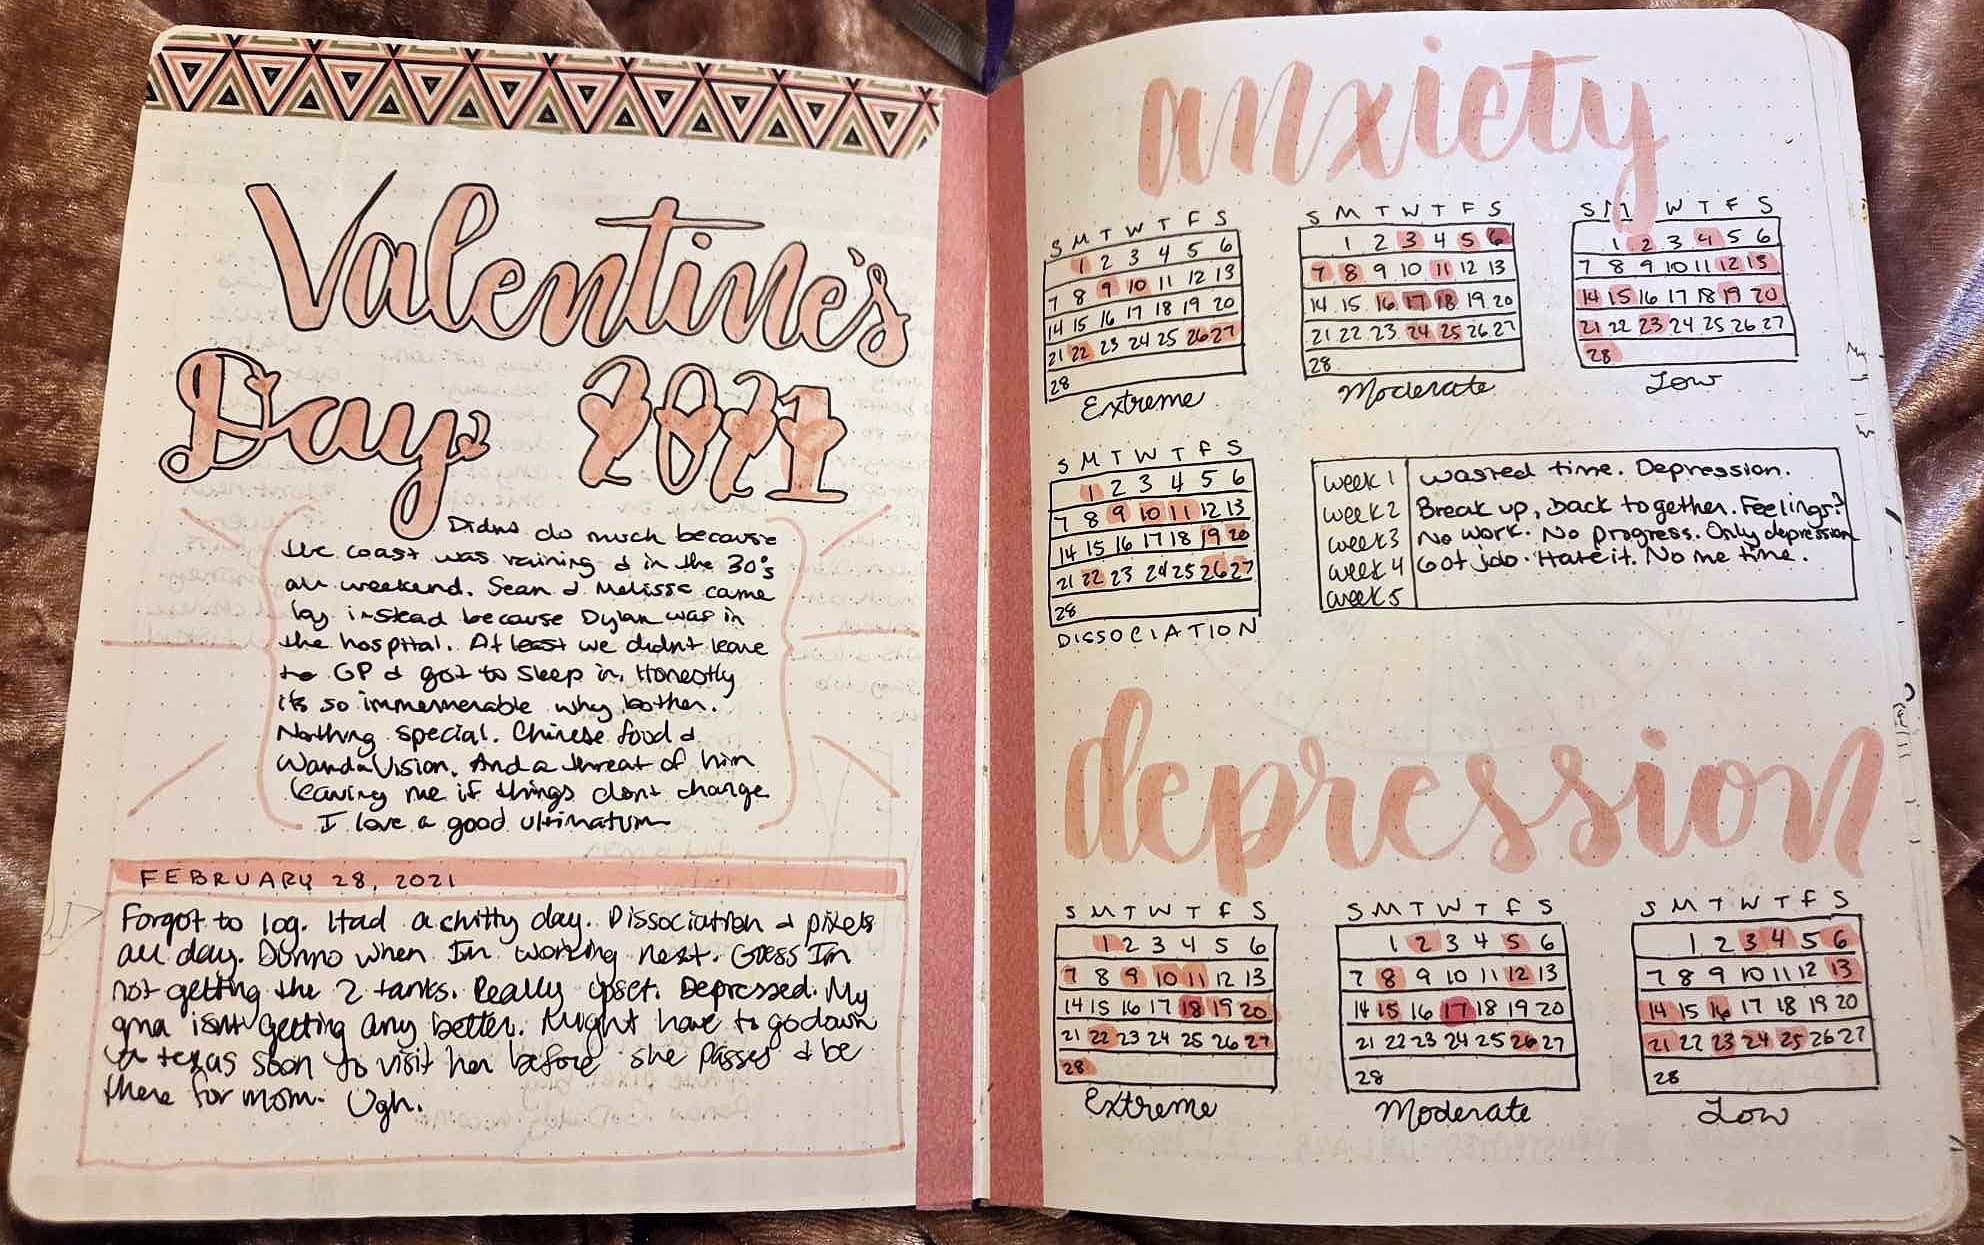 Valentine's
Day 2021
Didnt do much because
the coast was raining & in the 30's
all weekend. Sean & Melissa came
by instead because Dylan was in
the hospital. At least we didn't leave
to GP & got to sleep in. Honestly
its so immemerable why bother.
Nothing special. Chinese food &
WandaVision. And a threat of him
leaving me if things dont change
I love a good ultimatum
FEBRUARY 28, 2021
Forgot to log. Had a chitty day. Dissociation & pixels
all day. Dunno when Im working next. Guess Im
not getting the 2 tanks. Really upset. Depressed. My
gma isnt getting any better. Might have to go down
to texas soon to visit her before she passes & be
there for mom. Ugh.
anxiety
S M T W T F S
1 2 3 4 5 6
7 8 9 10 11 12 13
14 15 16 17 18 19 20
21 22 23 24 25 26 27
28
Extreme
S M T W T F S
1 2 3 4 5 6
7 8 9 10 11 12 13
14 15 16 17 18 19 20
21 22 23 24 25 26 27
28
Moderate
S M W T F S
1 2 3 4 5 6
7 8 9 10 11 12 13
14 15 16 17 18 19 20
21 22 23 24 25 26 27
28
Low
S M T W T F S
1 2 3 4 5 6
7 8 9 10 11 12 13
14 15 16 17 18 19 20
21 22 23 24 25 26 27
28
DISSOCIATION
week 1 wasted time. Depression.
week 2 Break up, back together. Feelings?
week 3 No work. No progress. Only depression
week 4 Got job. Hate it. No me time.
week 5
depression
S M T W T F S
1 2 3 4 5 6
7 8 9 10 11 12 13
14 15 16 17 18 19 20
21 22 23 24 25 26 27
28
Extreme
S M T W T F S
1 2 3 4 5 6
7 8 9 10 11 12 13
14 15 16 17 18 19 20
21 22 23 24 25 26 27
28
Moderate
S M T W T F S
1 2 3 4 5 6
7 8 9 10 11 12 13
14 15 16 17 18 19 20
21 22 23 24 25 26 27
28
Low